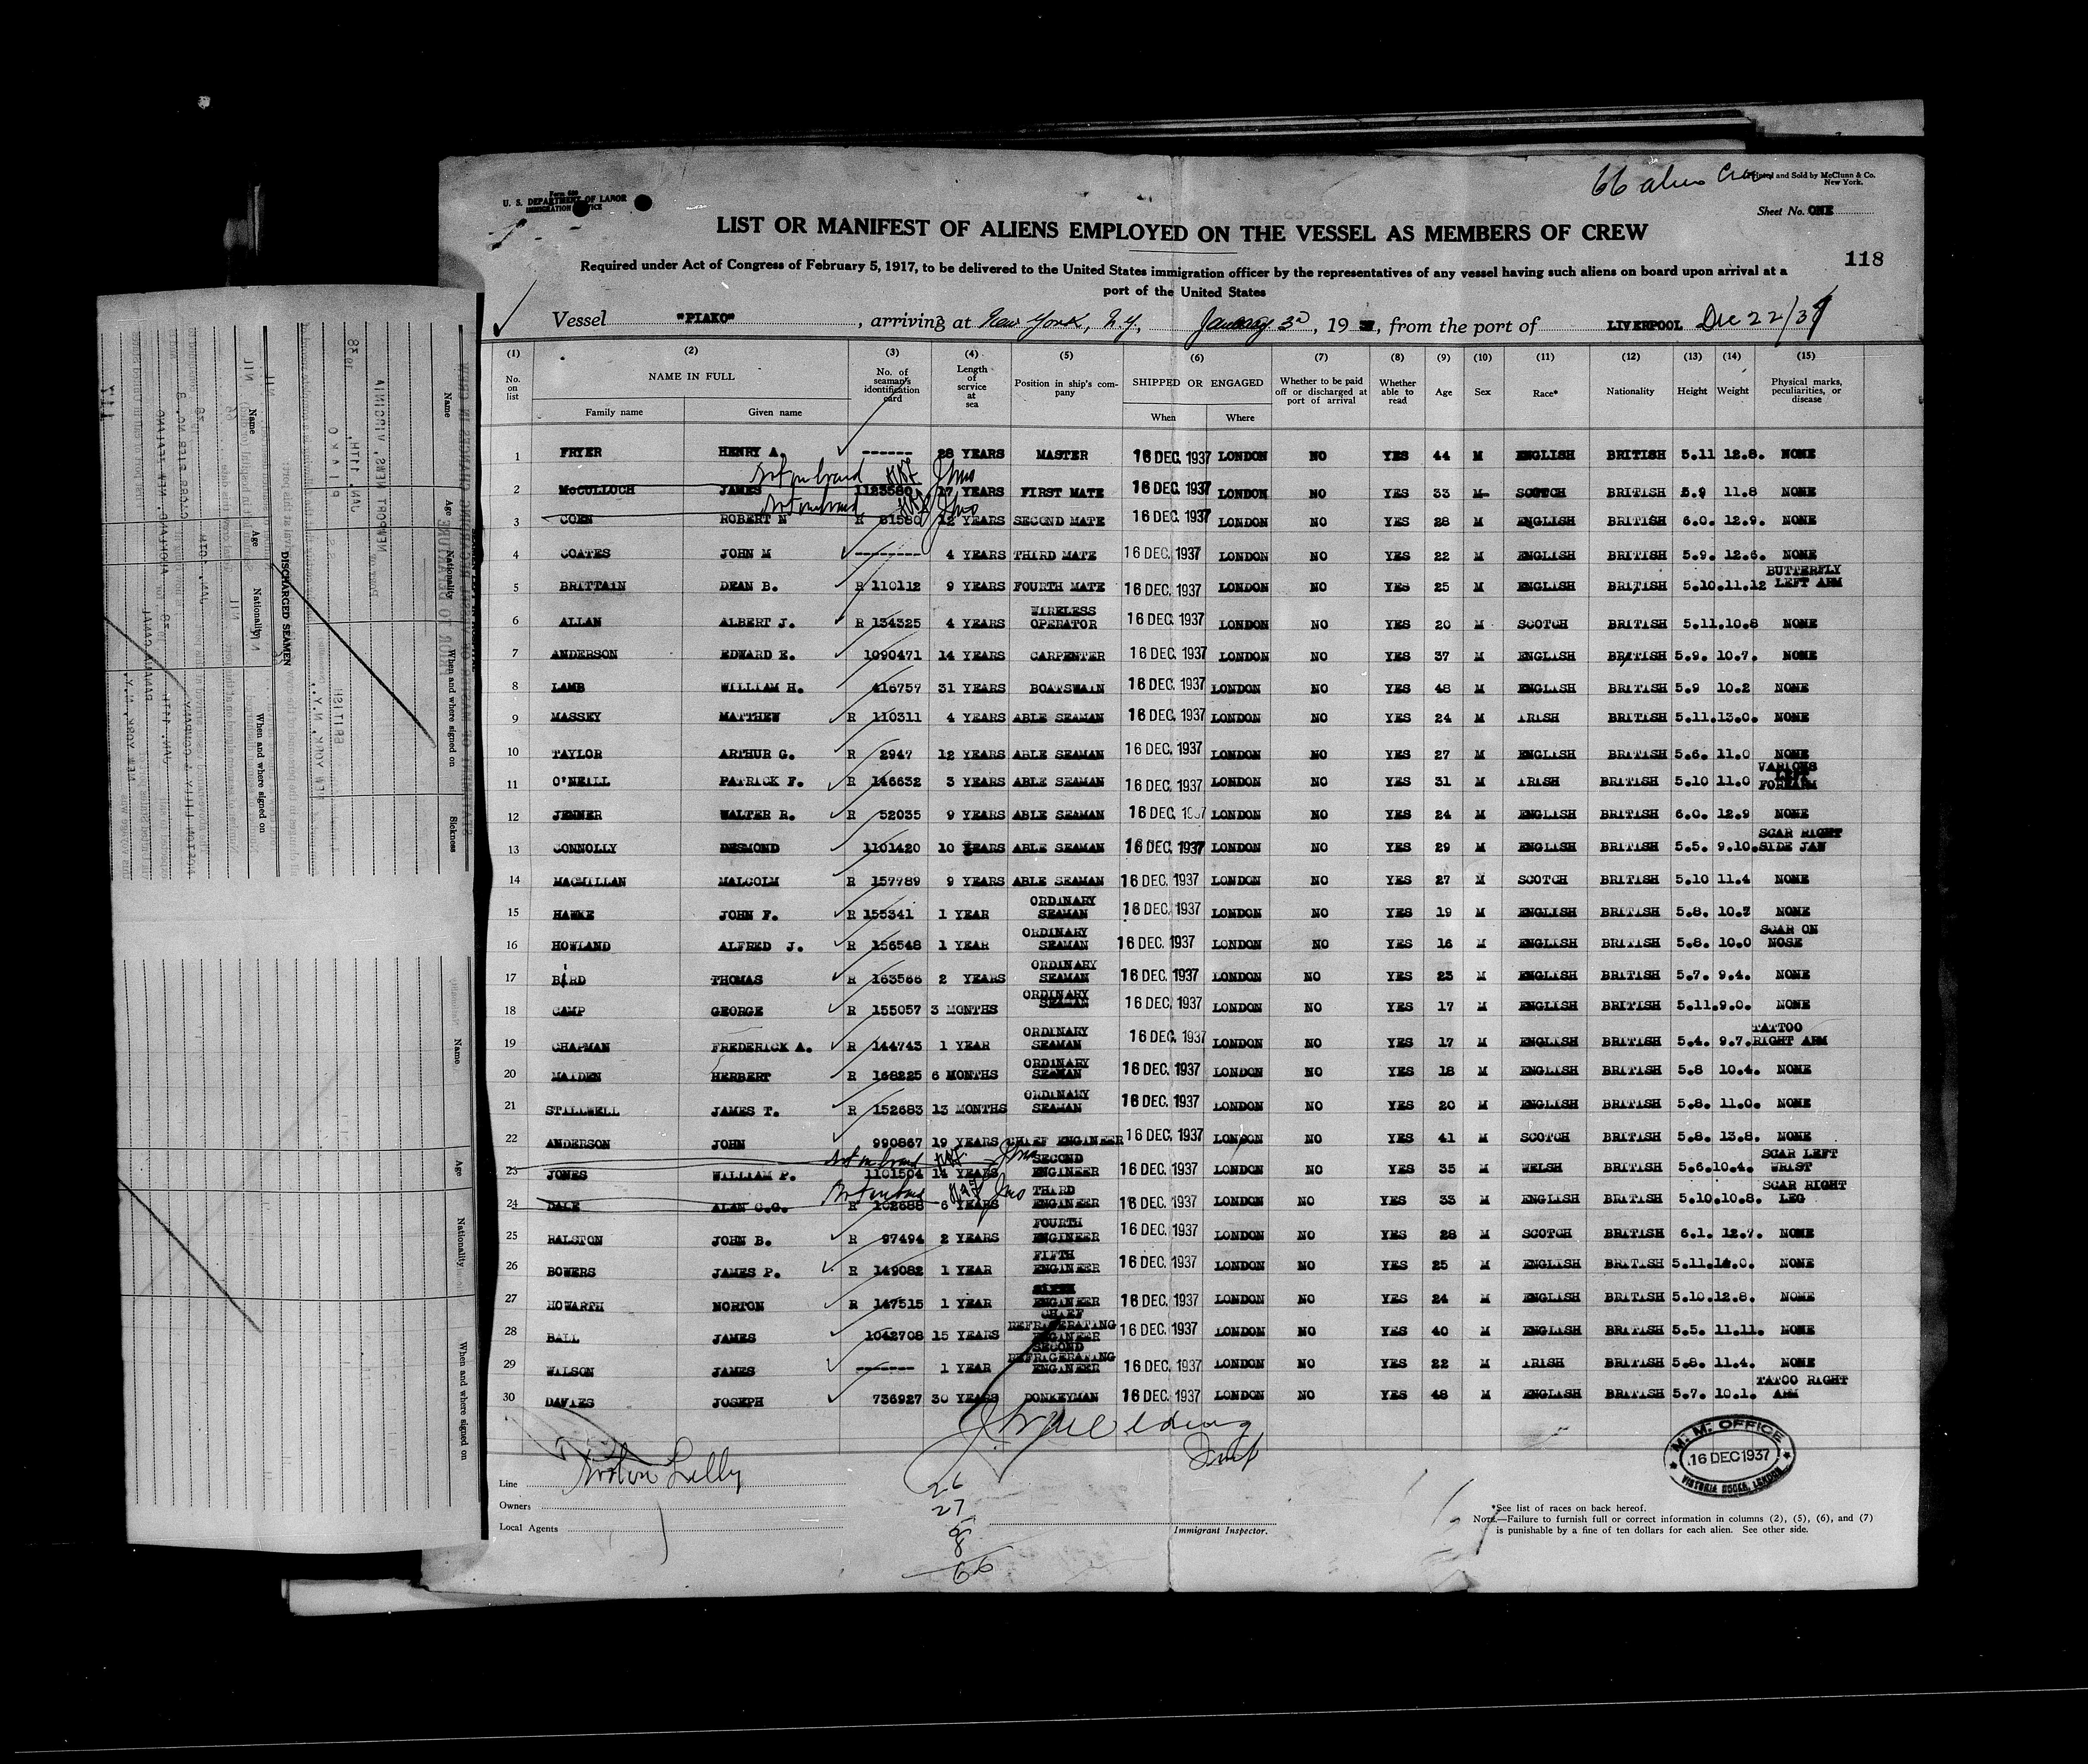 66 alien Crew
Printed and Sold by McClunn & Co.
New York.
Form 689
U. S. DEPARTMENT OF LABOR
IMMIGRATION SERVICE
Sheet No. ONE
LIST OR MANIFEST OF ALIENS EMPLOYED ON THE VESSEL AS MEMBERS OF CREW
118
Required under Act of Congress of February 5, 1917, to be delivered to the United States immigration officer by the representatives of any vessel having such aliens on board upon arrival at a
port of the United States
Vessel "PIAKO", arriving at New York, N.Y., January 3d, 19, from the port of LIVERPOOL Dec 22/37
(1) (2) (3) (4) (5) (6) (7) (8) (9) (10) (11) (12) (13) (14) (15)
No. on list NAME IN FULL Family name Given name No. of seaman's identification card Length of service at sea Position in ship's company SHIPPED OR ENGAGED When Where Whether to be paid off or discharged at port of arrival Whether able to read Age Sex Race* Nationality Height Weight Physical marks, peculiarities, or disease
1 FRYER HENRY A. ------ 28 YEARS MASTER 16 DEC. 1937 LONDON NO YES 44 M ENGLISH BRITISH 5.11 12.8. NONE
Not on board
2 McCULLOCH JAMES 1123580 17 YEARS FIRST MATE 16 DEC. 1937 LONDON NO YES 33 M SCOTCH BRITISH 5.9 11.8 NONE
Not on board
3 COEN ROBERT N R 81580 12 YEARS SECOND MATE 16 DEC. 1937 LONDON NO YES 28 M ENGLISH BRITISH 6.0. 12.9. NONE
4 COATES JOHN M -------- 4 YEARS THIRD MATE 16 DEC. 1937 LONDON NO YES 22 M ENGLISH BRITISH 5.9. 12.6. NONE
5 BRITTAIN DEAN B. R 110112 9 YEARS FOURTH MATE 16 DEC. 1937 LONDON NO YES 25 M ENGLISH BRITISH 5.10. 11.12 BUTTERFLY LEFT ARM
6 ALLAN ALBERT J. R 134325 4 YEARS WIRELESS OPERATOR 16 DEC. 1937 LONDON NO YES 20 M SCOTCH BRITISH 5.11. 10.8 NONE
7 ANDERSON EDWARD E. 1090471 14 YEARS CARPENTER 16 DEC. 1937 LONDON NO YES 37 M ENGLISH BRITISH 5.9. 10.7. NONE
8 LAMB WILLIAM H. 416757 31 YEARS BOATSWAIN 16 DEC. 1937 LONDON NO YES 48 M ENGLISH BRITISH 5.9 10.2 NONE
9 MASSEY MATTHEW R 110311 4 YEARS ABLE SEAMAN 16 DEC. 1937 LONDON NO YES 24 M IRISH BRITISH 5.11. 13.0. NONE
10 TAYLOR ARTHUR G. R 2947 12 YEARS ABLE SEAMAN 16 DEC. 1937 LONDON NO YES 27 M ENGLISH BRITISH 5.6. 11.0 NONE
11 O'NEILL PATRICK F. R 146632 3 YEARS ABLE SEAMAN 16 DEC. 1937 LONDON NO YES 31 M IRISH BRITISH 5.10 11.0 VARIOUS LEFT FOREARM
12 JENNER WALTER R. R 52035 9 YEARS ABLE SEAMAN 16 DEC. 1937 LONDON NO YES 24 M ENGLISH BRITISH 6.0. 12.9 NONE
13 CONNOLLY DESMOND 1101420 10 YEARS ABLE SEAMAN 16 DEC. 1937 LONDON NO YES 29 M ENGLISH BRITISH 5.5. 9.10. SCAR RIGHT SIDE JAW
14 MACMILLAN MALCOLM R 157789 9 YEARS ABLE SEAMAN 16 DEC. 1937 LONDON NO YES 27 M SCOTCH BRITISH 5.10 11.4 NONE
15 HAWKE JOHN F. R 155341 1 YEAR ORDINARY SEAMAN 16 DEC. 1937 LONDON NO YES 19 M ENGLISH BRITISH 5.8. 10.7 NONE
16 HOWLAND ALFRED J. R 156548 1 YEAR ORDINARY SEAMAN 16 DEC. 1937 LONDON NO YES 16 M ENGLISH BRITISH 5.8. 10.0 SCAR ON NOSE
17 BIRD THOMAS R 163566 2 YEARS ORDINARY SEAMAN 16 DEC. 1937 LONDON NO YES 23 M ENGLISH BRITISH 5.7. 9.4. NONE
18 CAMP GEORGE R 155057 3 MONTHS ORDINARY SEAMAN 16 DEC. 1937 LONDON NO YES 17 M ENGLISH BRITISH 5.11. 9.0. NONE
19 CHAPMAN FREDERICK A. R 144743 1 YEAR ORDINARY SEAMAN 16 DEC. 1937 LONDON NO YES 17 M ENGLISH BRITISH 5.4. 9.7. TATTOO RIGHT ARM
20 MAIDEN HERBERT R 168225 6 MONTHS ORDINARY SEAMAN 16 DEC. 1937 LONDON NO YES 18 M ENGLISH BRITISH 5.8 10.4. NONE
21 STILLWELL JAMES T. R 152683 13 MONTHS ORDINARY SEAMAN 16 DEC. 1937 LONDON NO YES 20 M ENGLISH BRITISH 5.8. 11.0. NONE
22 ANDERSON JOHN 990867 19 YEARS CHIEF ENGINEER 16 DEC. 1937 LONDON NO YES 41 M SCOTCH BRITISH 5.8. 13.8. NONE
Not on board
23 JONES WILLIAM P. 1101504 14 YEARS SECOND ENGINEER 16 DEC. 1937 LONDON NO YES 35 M WELSH BRITISH 5.6. 10.4. SCAR LEFT WRIST
Not on board
24 DALE ALAN C.G. R 102688 6 YEARS THIRD ENGINEER 16 DEC. 1937 LONDON NO YES 33 M ENGLISH BRITISH 5.10. 10.8. SCAR RIGHT LEG
25 RALSTON JOHN B. R 97494 2 YEARS FOURTH ENGINEER 16 DEC. 1937 LONDON NO YES 28 M SCOTCH BRITISH 6.1. 12.7. NONE
26 BOWERS JAMES P. R 149082 1 YEAR FIFTH ENGINEER 16 DEC. 1937 LONDON NO YES 25 M ENGLISH BRITISH 5.11. 14.0. NONE
27 HOWARTH NORTON R 147515 1 YEAR SIXTH ENGINEER 16 DEC. 1937 LONDON NO YES 24 M ENGLISH BRITISH 5.10. 12.8. NONE
28 BALL JAMES 1042708 15 YEARS CHIEF REFRIGERATING ENGINEER 16 DEC. 1937 LONDON NO YES 40 M ENGLISH BRITISH 5.5. 11.11. NONE
29 WILSON JAMES ------- 1 YEAR SECOND REFRIGERATING ENGINEER 16 DEC. 1937 LONDON NO YES 22 M IRISH BRITISH 5.8. 11.4. NONE
30 DAVIES JOSEPH 736927 30 YEARS DONKEYMAN 16 DEC. 1937 LONDON NO YES 48 M ENGLISH BRITISH 5.7. 10.1. TATOO RIGHT ARM
M. M. OFFICE
16 DEC 1937
VICTORIA DOCKS, LONDON
Line Norton Lilly
Owners
Local Agents
26
27
5
8
66
Immigrant Inspector.
*See list of races on back hereof.
Note.—Failure to furnish full or correct information in columns (2), (5), (6), and (7)
is punishable by a fine of ten dollars for each alien. See other side.
DISCHARGED SEAMEN
Name Age Nationality When and where signed on Sickness
Name Age Nationality When and where signed on